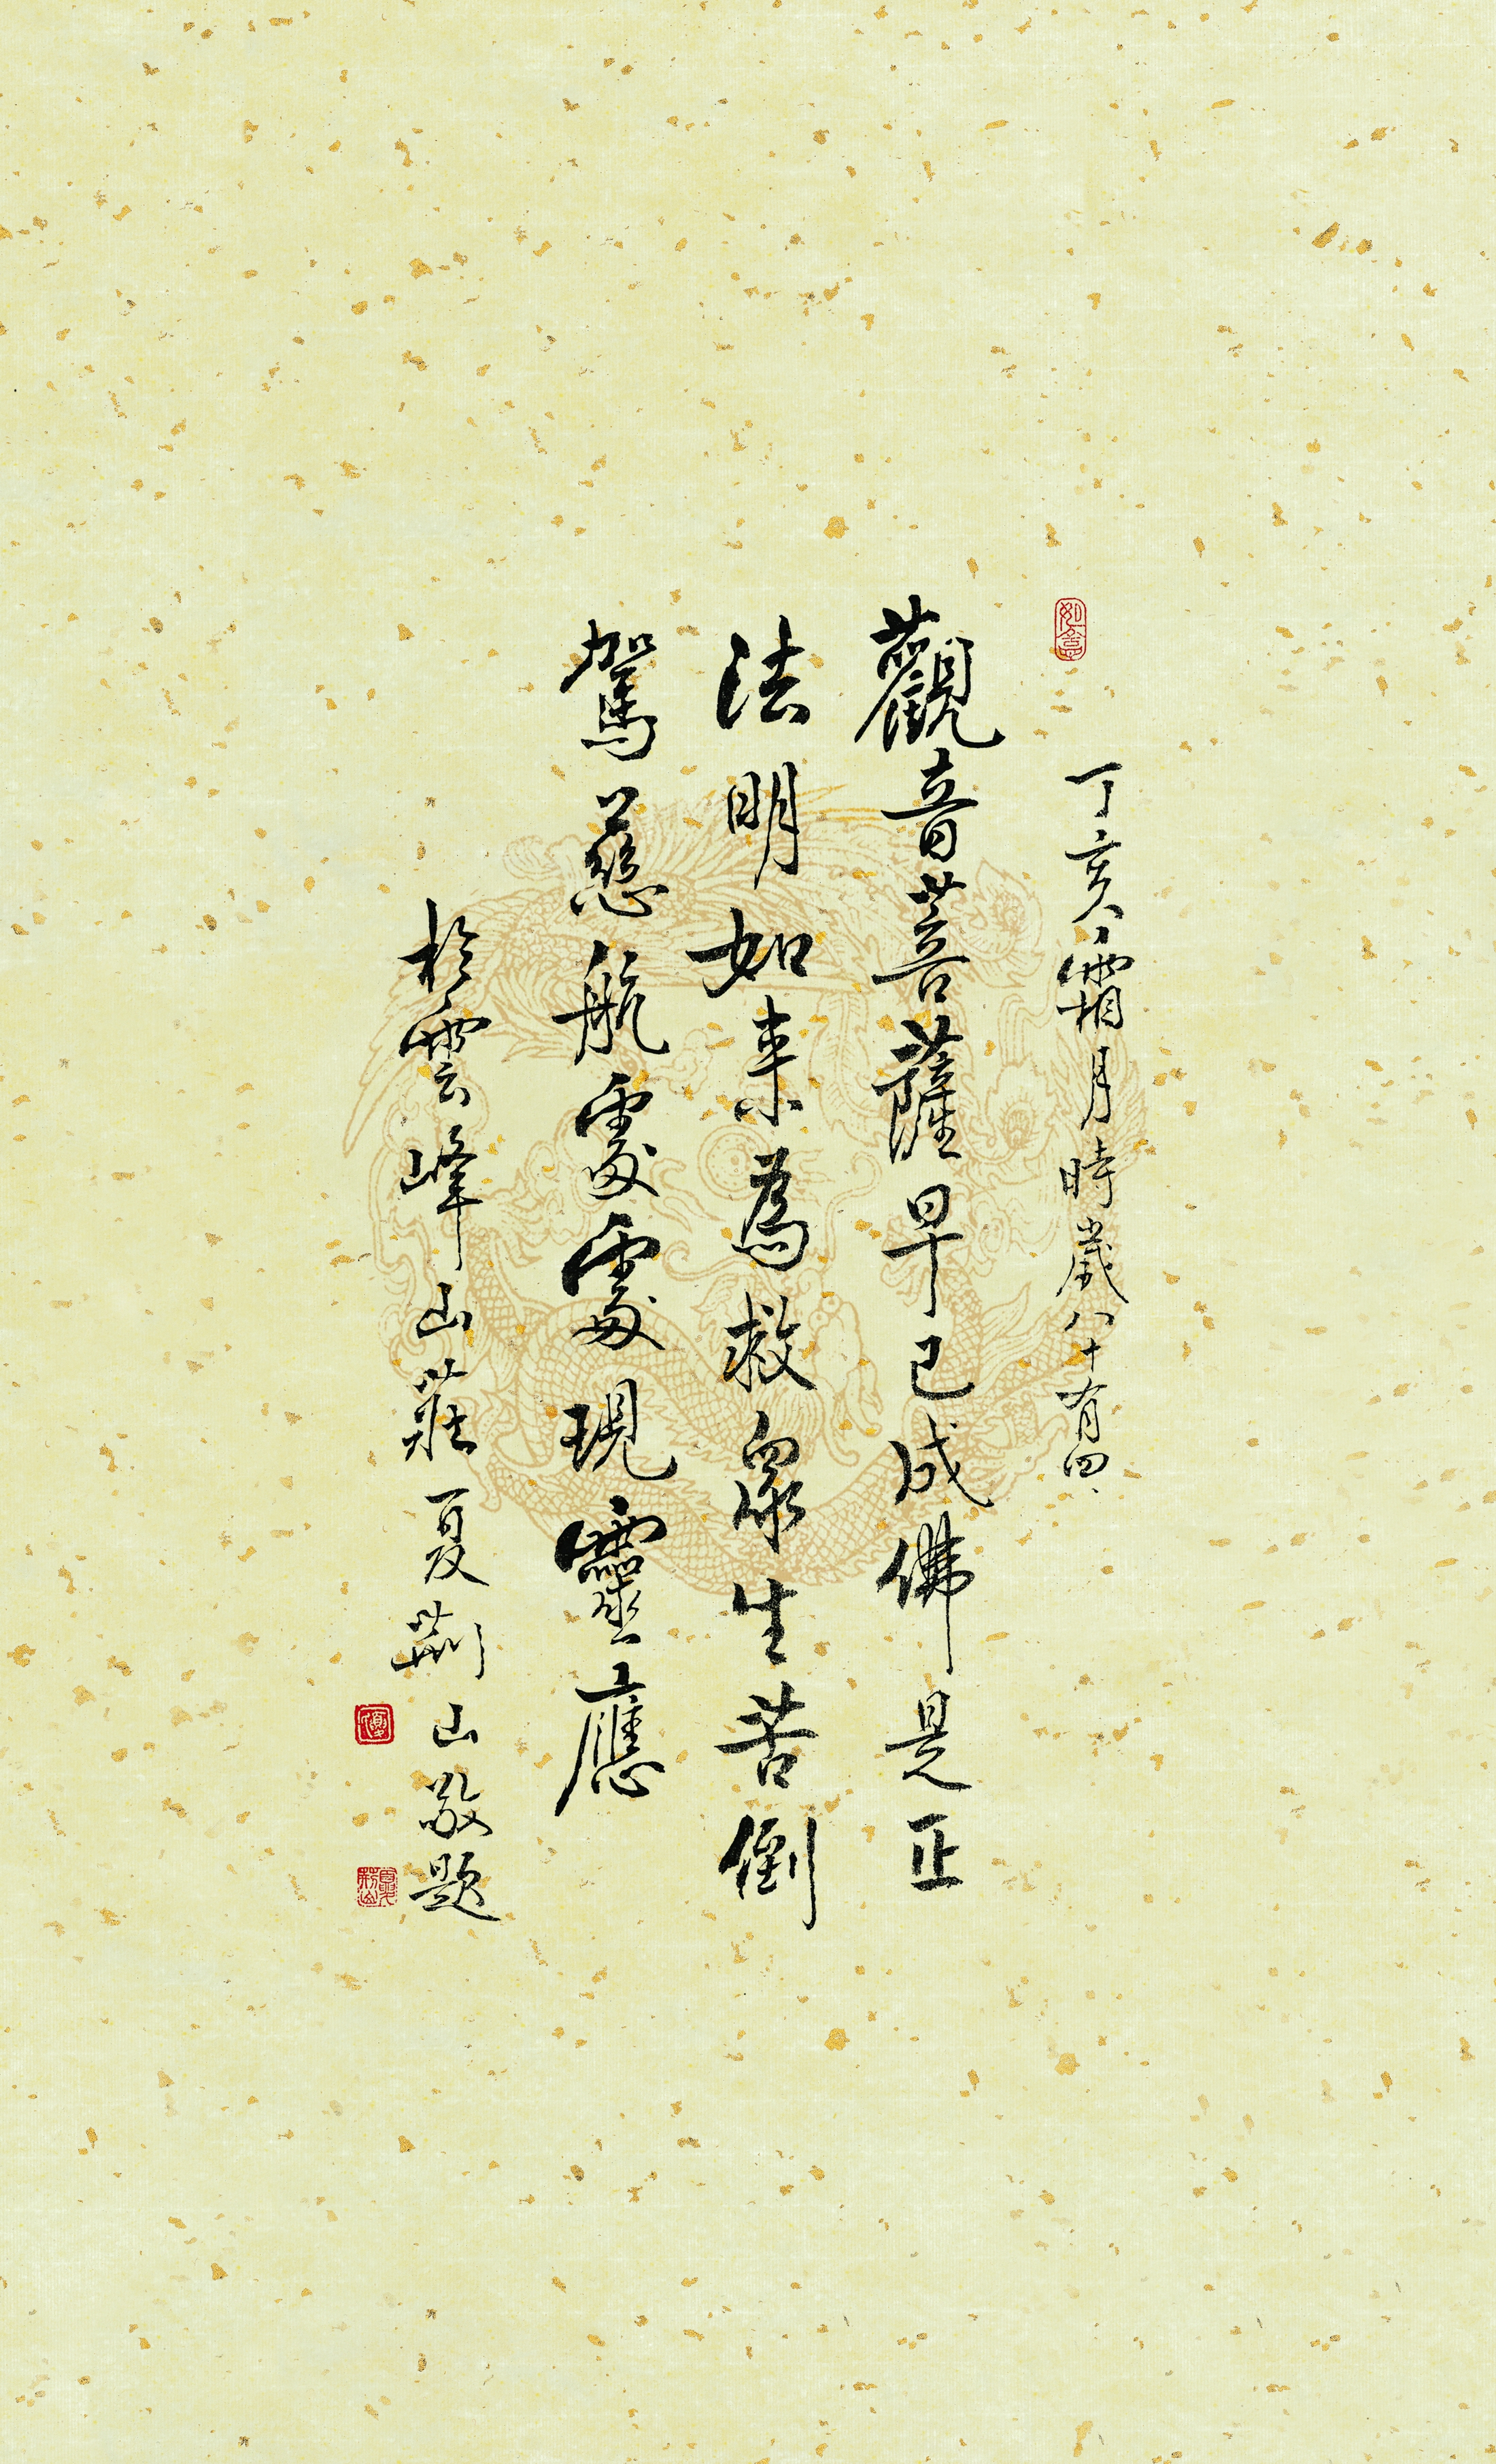 如意
丁亥霜月時歲八十有四
觀音菩薩早已成佛是正
法明如来為救眾生苦倒
駕慈航處處現靈應
於雲峰山莊夏荊山敬題
夏
夏荊山